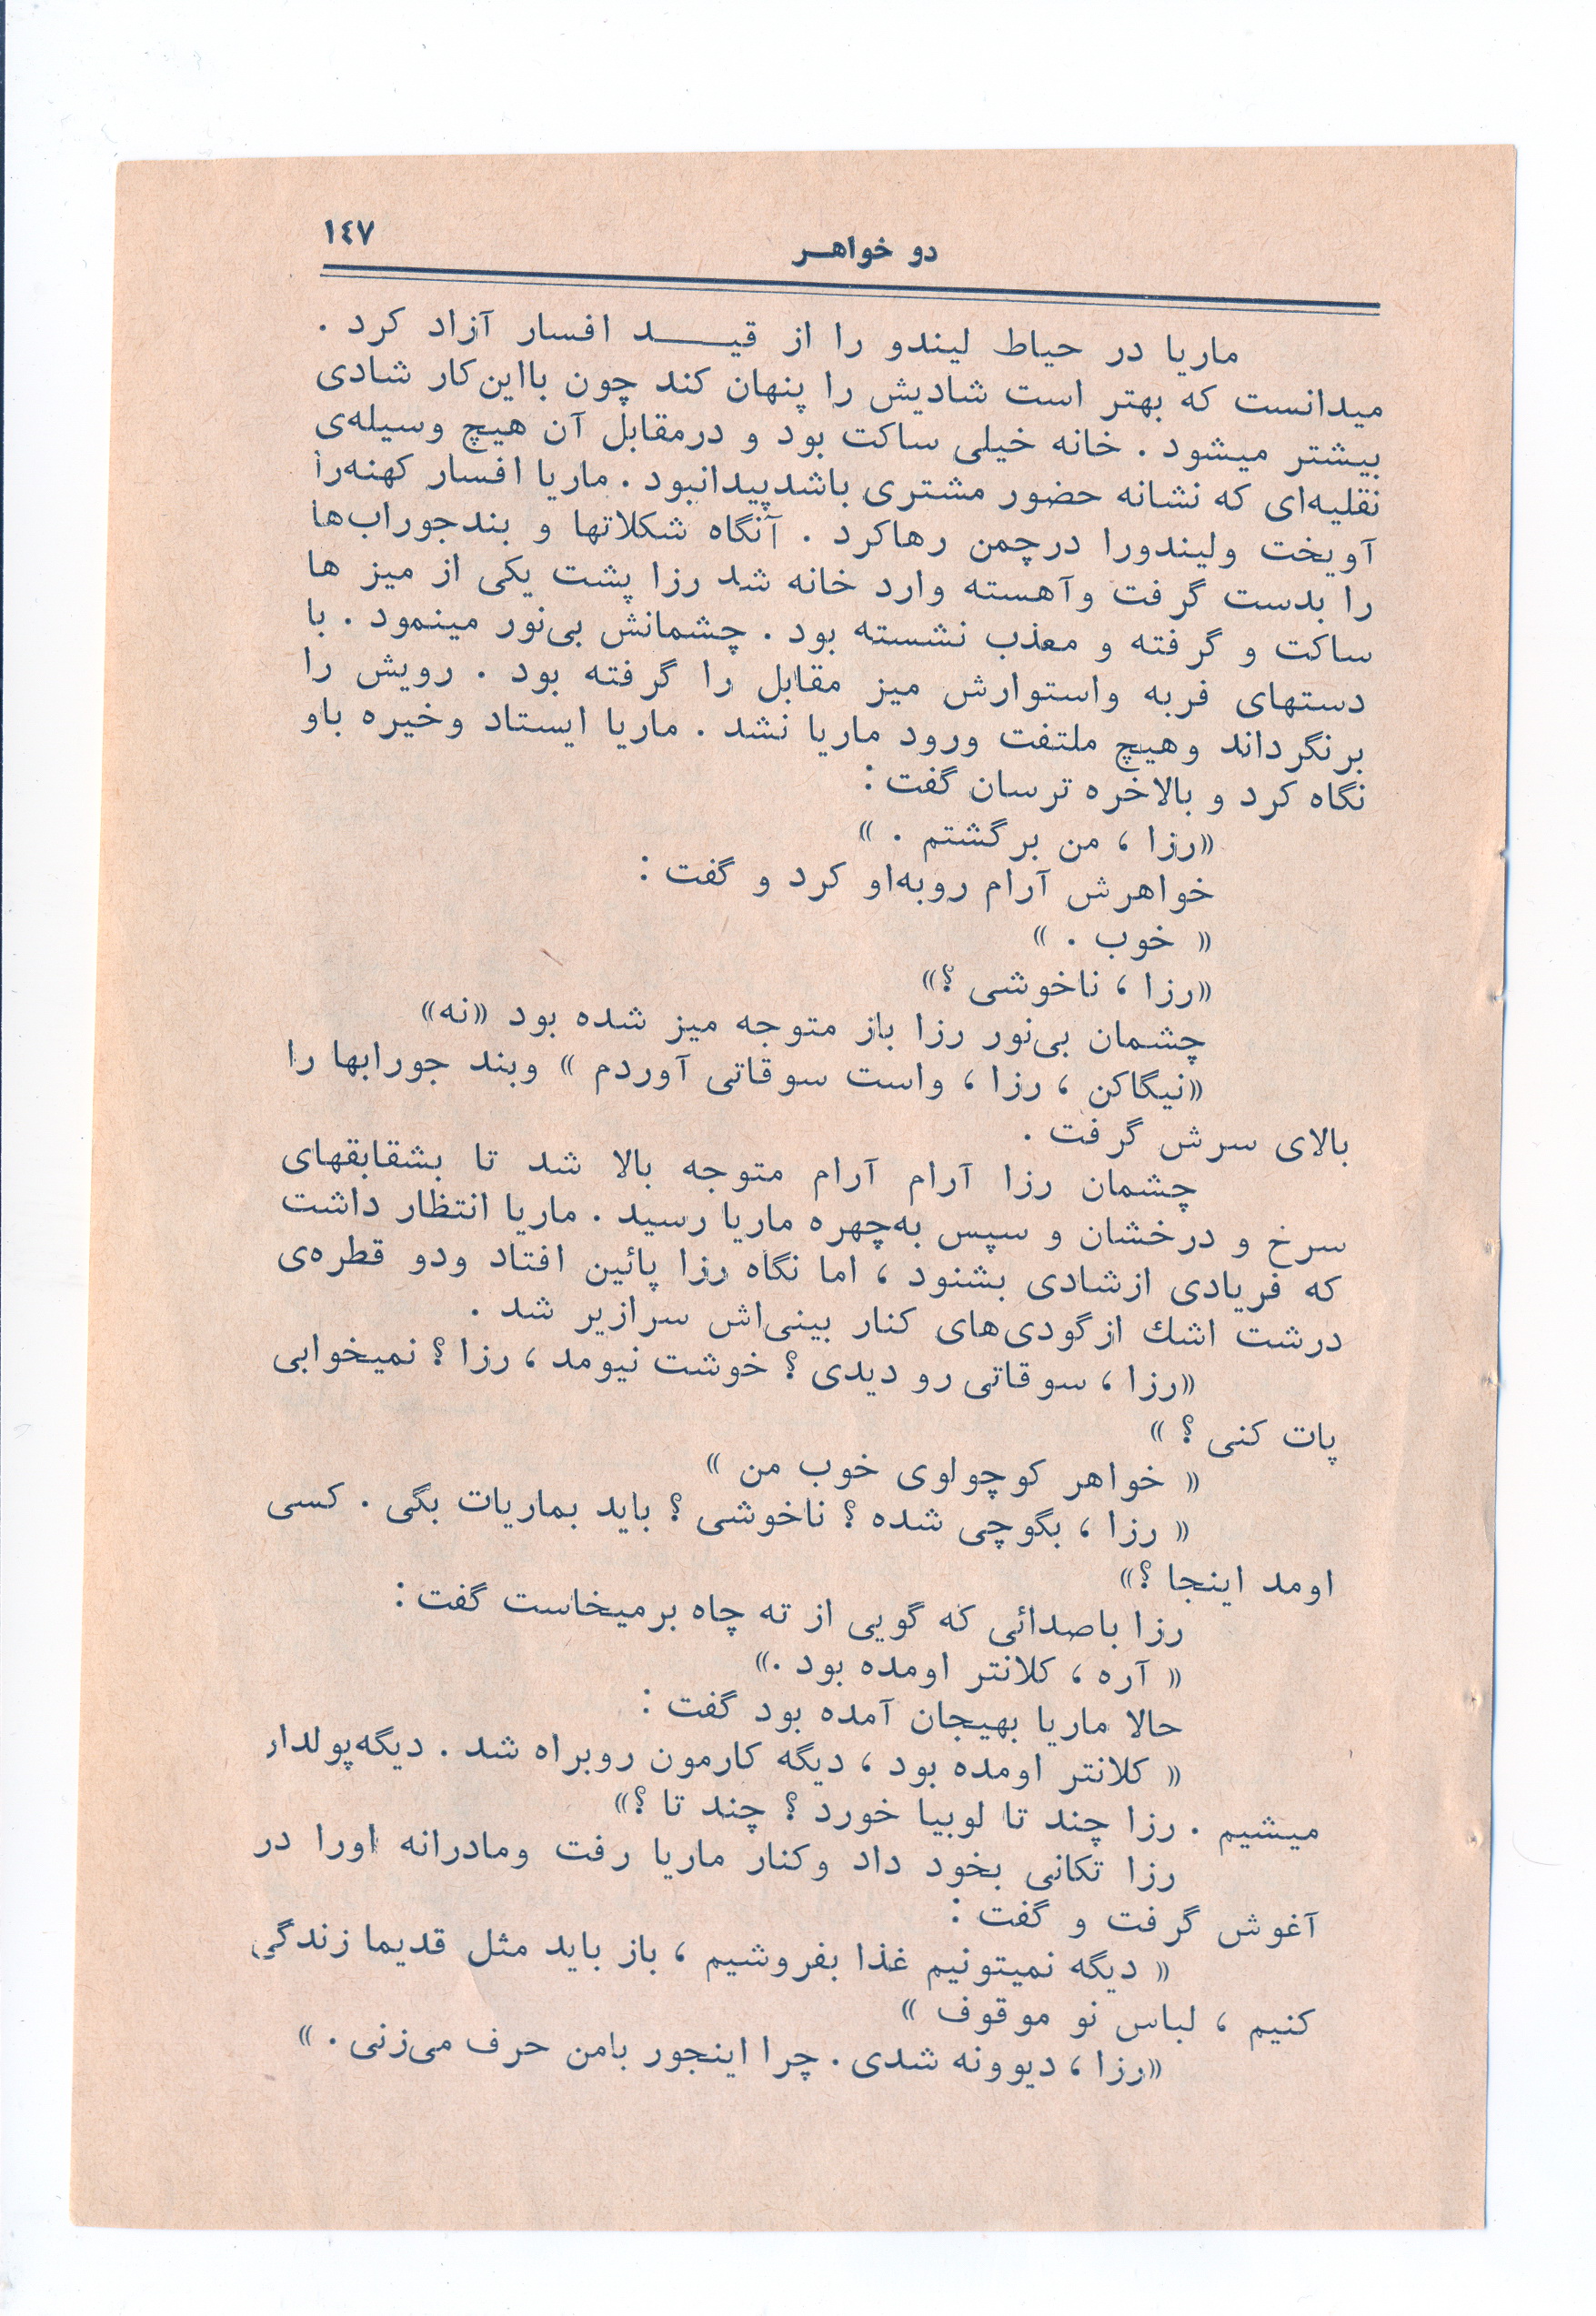 دو خواهر
۱٤۷
ماریا در حیاط لیندو را از قید افسار آزاد کرد .
میدانست که بهتر است شادیش را پنهان کند چون بااین‌کار شادی
بیشتر میشود . خانه خیلی ساکت بود و درمقابل آن هیچ وسیله‌ی
نقلیه‌ای که نشانه حضور مشتری باشدپیدانبود . ماریا افسار کهنه‌را
آویخت ولیندورا درچمن رهاکرد . آنگاه شکلاتها و بندجوراب‌ها
را بدست گرفت وآهسته وارد خانه شد رزا پشت یکی از میز ها
ساکت و گرفته و معذب نشسته بود . چشمانش بی‌نور مینمود . با
دستهای فربه واستوارش میز مقابل را گرفته بود . رویش را
برنگرداند وهیچ ملتفت ورود ماریا نشد . ماریا ایستاد وخیره باو
نگاه کرد و بالاخره ترسان گفت :
«رزا ، من برگشتم . »
خواهرش آرام روبه‌او کرد و گفت :
« خوب . »
«رزا ، ناخوشی ؟»
چشمان بی‌نور رزا باز متوجه میز شده بود «نه»
«نیگاکن ، رزا ، واست سوقاتی آوردم » وبند جورابها را
بالای سرش گرفت .
چشمان رزا آرام آرام متوجه بالا شد تا بشقابقهای
سرخ و درخشان و سپس به‌چهره ماریا رسید . ماریا انتظار داشت
که فریادی ازشادی بشنود ، اما نگاه رزا پائین افتاد ودو قطره‌ی
درشت اشك ازگودی‌های کنار بینی‌اش سرازیر شد .
«رزا ، سوقاتی رو دیدی ؟ خوشت نیومد ، رزا ؟ نمیخوابی
پات کنی ؟ »
« خواهر کوچولوی خوب من »
« رزا ، بگوچی شده ؟ ناخوشی ؟ باید بماریات بگی . کسی
اومد اینجا ؟»
رزا باصدائی که گویی از ته چاه برمیخاست گفت :
« آره ، کلانتر اومده بود .»
حالا ماریا بهیجان آمده بود گفت :
« کلانتر اومده بود ، دیگه کارمون روبراه شد . دیگه‌پولدار
میشیم . رزا چند تا لوبیا خورد ؟ چند تا ؟»
رزا تکانی بخود داد وکنار ماریا رفت ومادرانه اورا در
آغوش گرفت و گفت :
« دیگه نمیتونیم غذا بفروشیم ، باز باید مثل قدیما زندگی
کنیم ، لباس نو موقوف »
«رزا ، دیوونه شدی . چرا اینجور بامن حرف می‌زنی . »